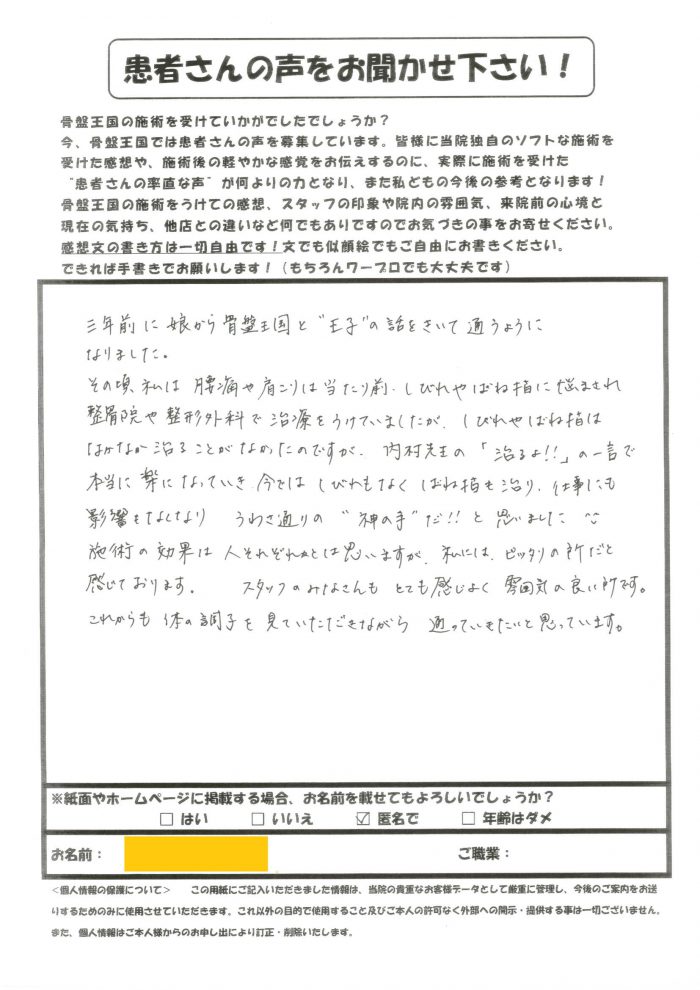 患者さんの声をお聞かせ下さい！
骨盤王国の施術を受けていかがでしたでしょうか？
今、骨盤王国では患者さんの声を募集しています。皆様に当院独自のソフトな施術を
受けた感想や、施術後の軽やかな感覚をお伝えするのに、実際に施術を受けた
“患者さんの率直な声”が何よりの力となり、また私どもの今後の参考となります！
骨盤王国の施術をうけての感想、スタッフの印象や院内の雰囲気、来院前の心境と
現在の気持ち、他店との違いなど何でもありですのでお気づきの事をお寄せください。
感想文の書き方は一切自由です！文でも似顔絵でもご自由にお書きください。
できれば手書きでお願いします！（もちろんワープロでも大丈夫です）
三年前に娘から骨盤王国と“王子”の話をきいて通うように
なりました。
その頃、私は腰痛や肩こりは当たり前、しびれやばね指に悩まされ
整骨院や整形外科で治療をうけていましたが、しびれやばね指は
なかなか治ることがなかったのですが、内村先生の「治るよ!!」の一言で
本当に楽になっていき、今ではしびれもなくばね指も治り、仕事にも
影響もなくなり うわさ通りの“神の手”だ!!と思いました
施術の効果は人それぞれかとは思いますが、私には、ピッタリの所だと
感じております。 スタッフのみなさんもとても感じよく雰囲気の良い所です。
これからも体の調子を見ていただきながら 通っていきたいと思っています。
※紙面やホームページに掲載する場合、お名前を載せてもよろしいでしょうか？
□ はい □ いいえ ☑ 匿名で □ 年齢はダメ
お名前： ご職業：
＜個人情報の保護について＞ この用紙にご記入いただきました情報は、当院の貴重なお客様データとして厳重に管理し、今後のご案内をお送
りするためのみに使用させていただきます。これ以外の目的で使用すること及びご本人の許可なく外部への開示・提供する事は一切ございません。
また、個人情報はご本人様からのお申し出により訂正・削除いたします。